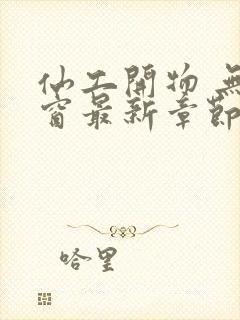 仙工開物 無
窗最新章節
哈里